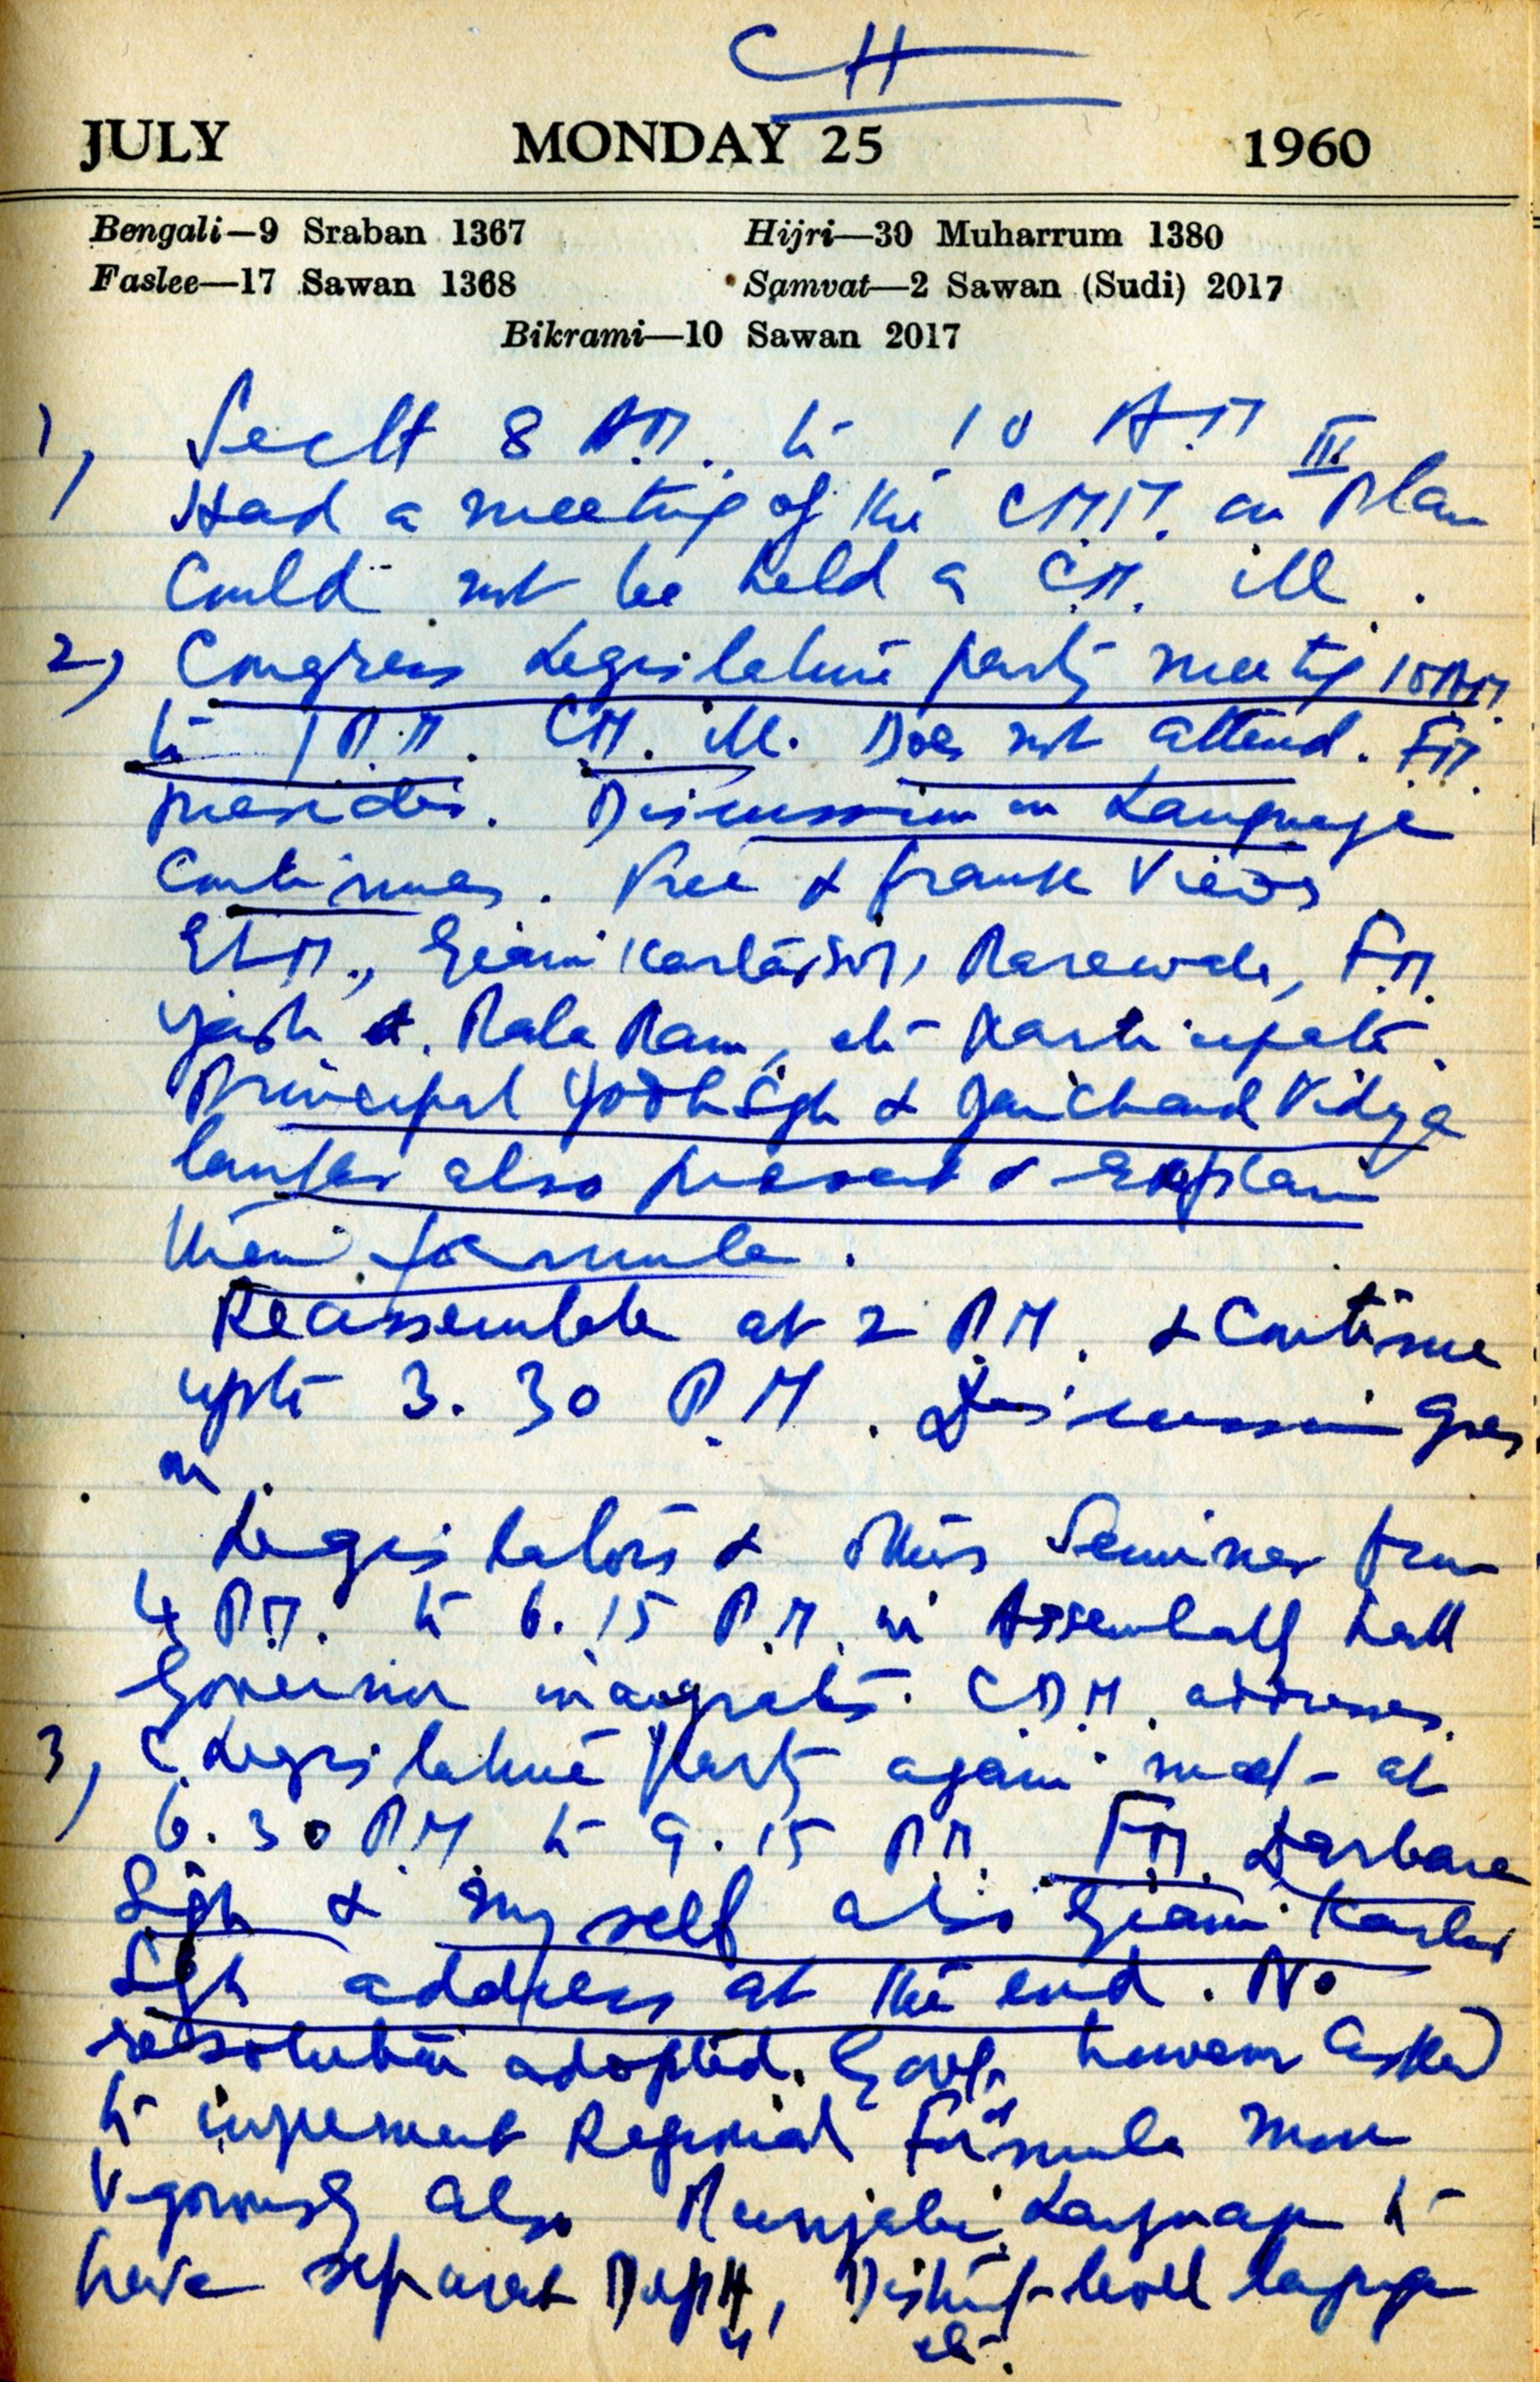 CH
JULY MONDAY 25 1960
Bengali—9 Sraban 1367 Hijri—30 Muharrum 1380
Faslee—17 Sawan 1368 Samvat—2 Sawan (Sudi) 2017
Bikrami—10 Sawan 2017
1, Sectt 8 A.M. to 10 A.M
Had a meeting of the CMM. on III Plan
Could not be held a C.M. ill.
2, Congress Legislature party meeting 10 AM
to 1 P.M. C.M. ill. Does not attend. F.M.
presides. Discussion on Language
Continues. Free & frank Views
ELM., Giani Kartar Sgh, Rarewala, F.M.
Yash &. Rala Ram, etc participate.
Principal Jodh Sgh & Jaichand Vidya
lankar also present & explain
their formula.
Reassemble at 2 P.M. & Continue
upto 3.30 P.M. Discussion goes
on.
Legislators & others Seminar from
4 P.M. to 6.15 P.M. in Assembaly hall
Governor inaugrates. C.D.M. addresses.
3, C. Legislature Party again meet at
6.30 P.M. to 9.15 P.M. F.M. Darbara
Sgh & myself also Giani Kartar
Sgh address at the end. No
resolution adopted. Govt. however asked
to impement Regional Formula more
Vigorously also Punjabi Language to
have separat Deptt, District level language
etc.